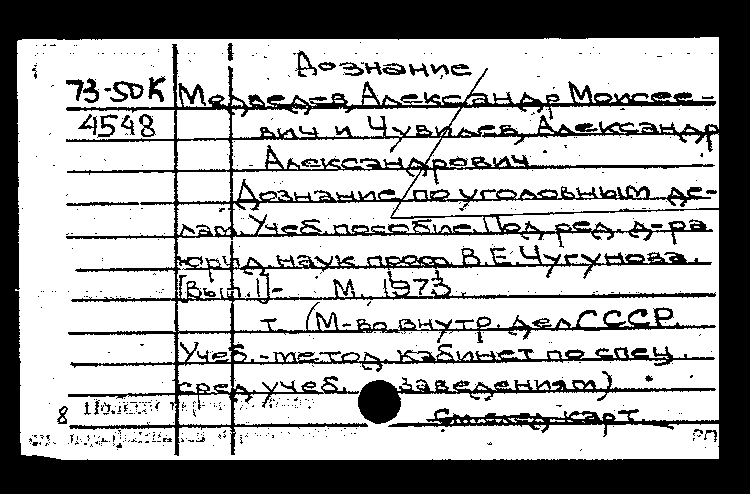 Дознание
73-50К Медведев, Александр Моисее-
4548 вич и Чувилев, Александр
Александрович
Дознание по уголовным де-
лам. Учеб. пособие. Под ред. д-ра
юрид. наук проф. В.Е. Чугунова.
[Вып. 1]- М., 1973.
т. (М-во внутр. дел СССР.
Учеб.-метод. кабинет по спец.
сред. учеб. заведениям)
8
См. след. карт.
РП